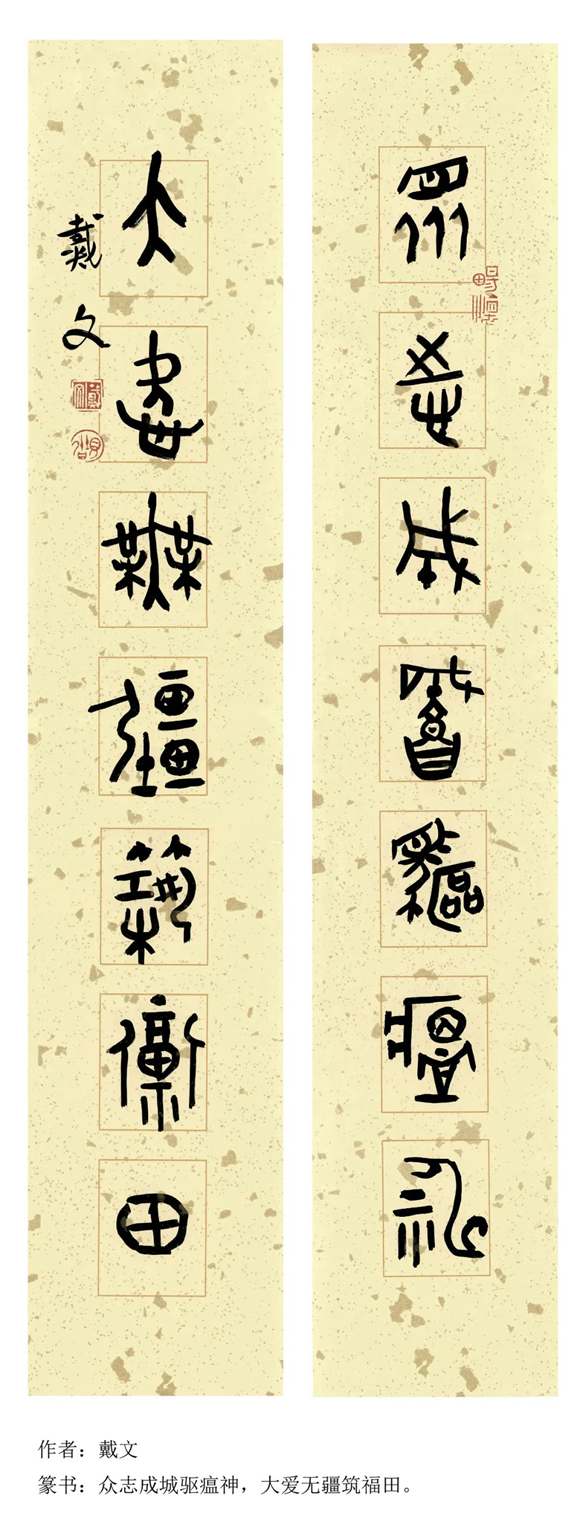 眾志成城驅瘟神
大愛無疆築福田
戴文
作者：戴文
篆书：众志成城驱瘟神，大爱无疆筑福田。